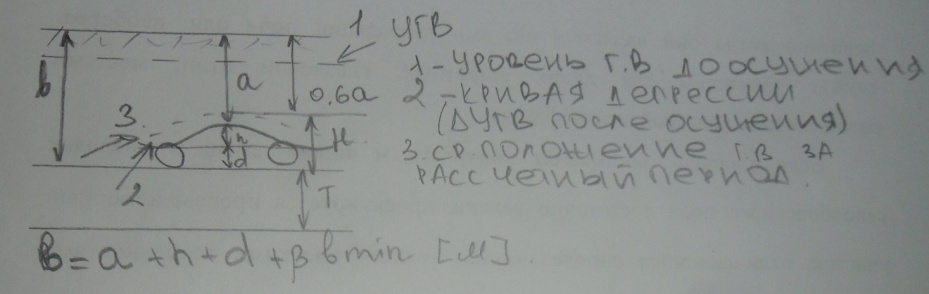 1 УГВ
1 - уровень г.в до осушения
в
a
0,6a
2 - кривая депрессии
(ΔУГВ после осушения)
3.
h
H
3. ср. положение г.в за
d
рассчетный период.
2
T
в = a + h + d + β в min [м].